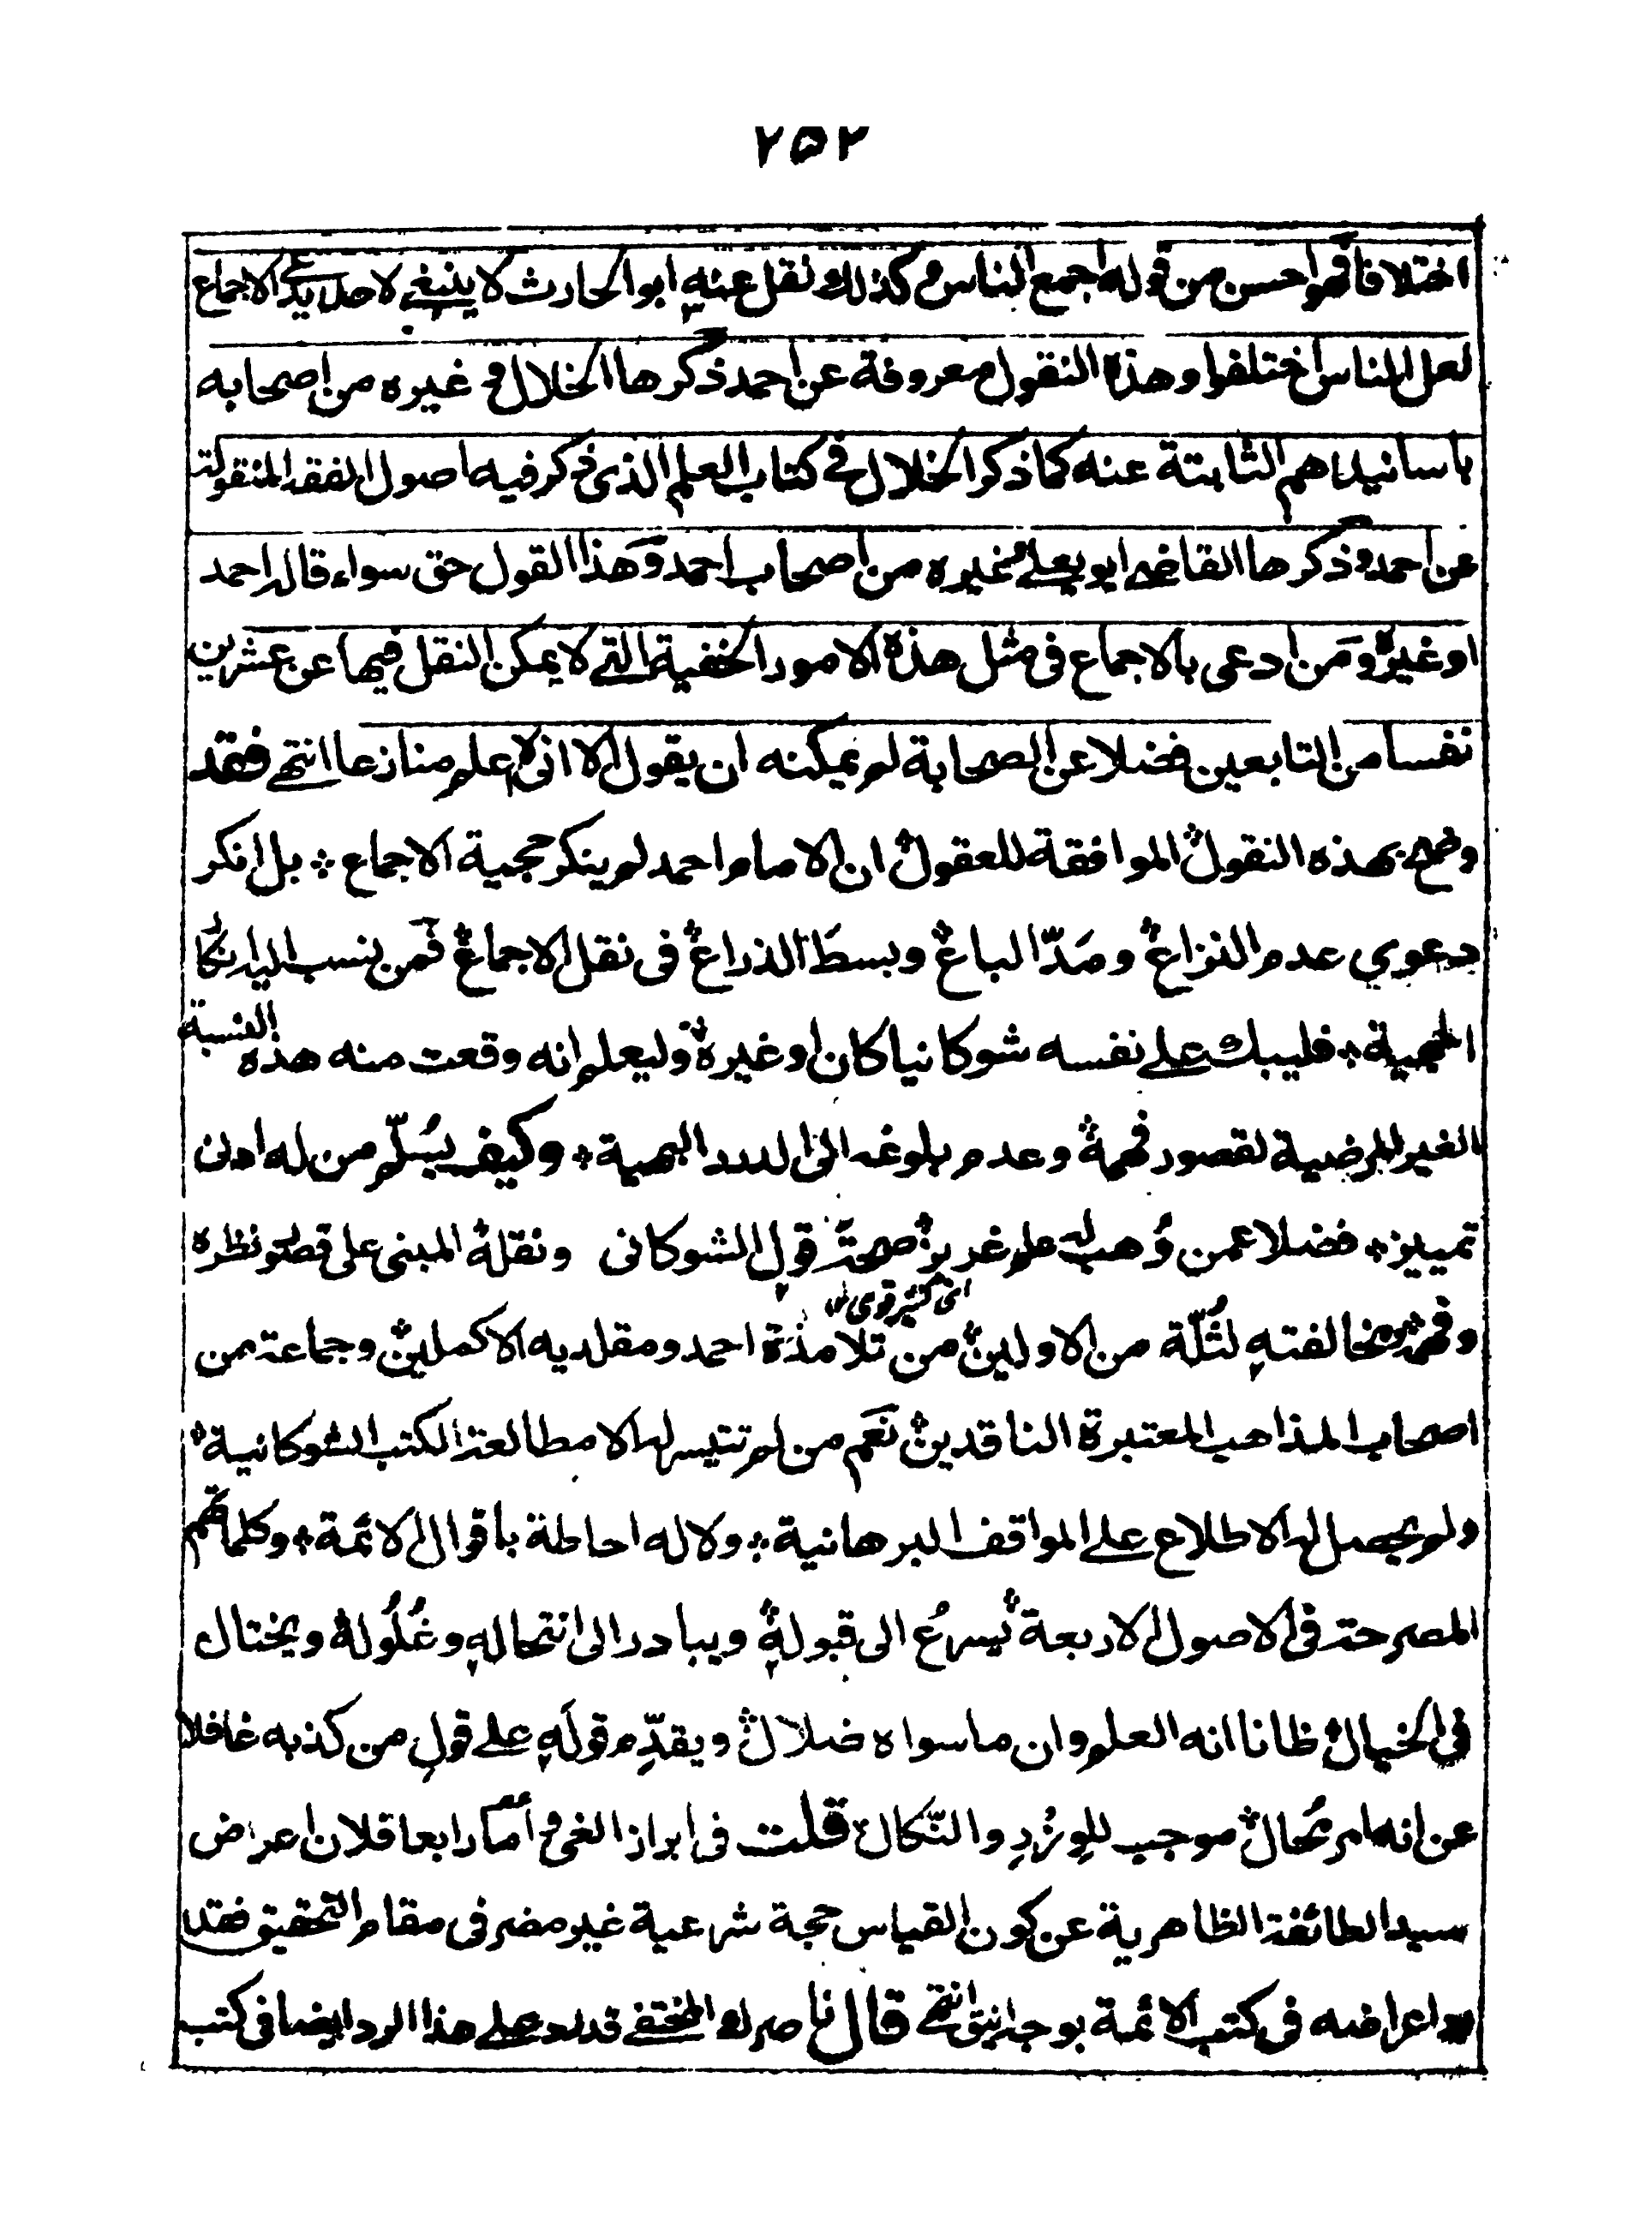 ٢٥٢
اختلافا فهو احسن من قوله اجمع الناس وكذلك نقل عنه ابو الحارث لا ينبغي لاحد يدعي الاجماع
لعل الناس اختلفوا وهذه النقول معروفة عن احمد ذكرها الخلال و غيره من اصحابه
باسانيدهم الثابتة عنه كما ذكر الخلال في كتاب العلم الذي ذكر فيه اصول الفقه المنقولة
عن احمد وذكرها القاضي ابو يعلى وغيره من اصحاب احمد وهذا القول حق سواء قاله احمد
او غيره ومن ادعى بالاجماع في مثل هذه الامور الخفية التي لا يمكن النقل فيها عن عشرين
نفسا من التابعين فضلا عن الصحابة لم يمكنه ان يقول الا اني لا اعلم منازعا انتهى فقد
وضح بهذه النقول الموافقة للعقول ان الامام احمد لم ينكر حجية الاجماع بل انكر
دعوي عدم النزاع ومَدّ الباع وبسط الذراع في نقل الاجماع فمن ينسب اليه انكار
الحجية فليبك على نفسه شوكانيا كان او غيره وليعلم انه وقعت منه هذه النسبة
الغير المرضية لقصور فهمه وعدم بلوغه الى المدد البهية وكيف يُسَلّم من له ادنى
تمييز فضلا عمن وُهب له علم غريز صحة قول الشوكاني ونقله المبني على قصور نظره
وفهمه ومخالفته لثُلّة من الاولين من تلامذة احمد ومقلديه الاكملين وجماعة من
اصحاب المذاهب المعتبرة الناقدين نَعَم من لم تتيسر له الا مطالعة الكتب الشوكانية
ولم يحصل له الاطلاع على المواقف البرهانية ولا له احاطة باقوال الائمة وكلماتهم
المصرحة في الاصول الاربعة يسرعُ الى قبوله ويبادر الى انتحاله وغُلُوله ويختال
في الخيال ظانا انه العلم وان ما سواه ضلال ويقدِّم قولَه على قولِ من كذبه غافلا
عن انه امر مُحال موجب للوِزْرِ والنّكال قلت في ابراز الغي و اما رابعا فلان اعراض
سيد الطائفة الظاهرية عن كون القياس حجة شرعية غير مضر في مقام التحقيق فقد
رد اعراضه في كتب الائمة بوجه انيق انتهى قال ناصرك المختفي قد رد على هذا الرد ايضا في كتب